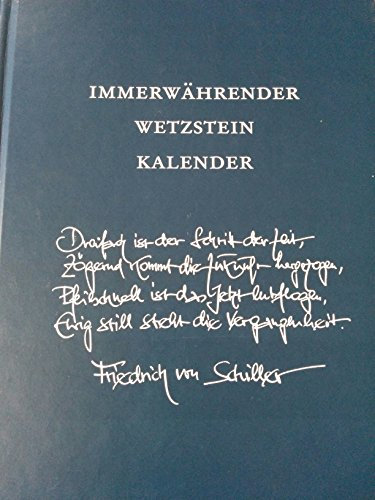 IMMERWÄHRENDER
WETZSTEIN
KALENDER
Dreifach ist der Schritt der Zeit,
Zögernd kommt die Zukunft hergezogen,
Pfeilschnell ist das Jetzt entflogen,
Ewig still steht die Vergangenheit.
Friedrich von Schiller